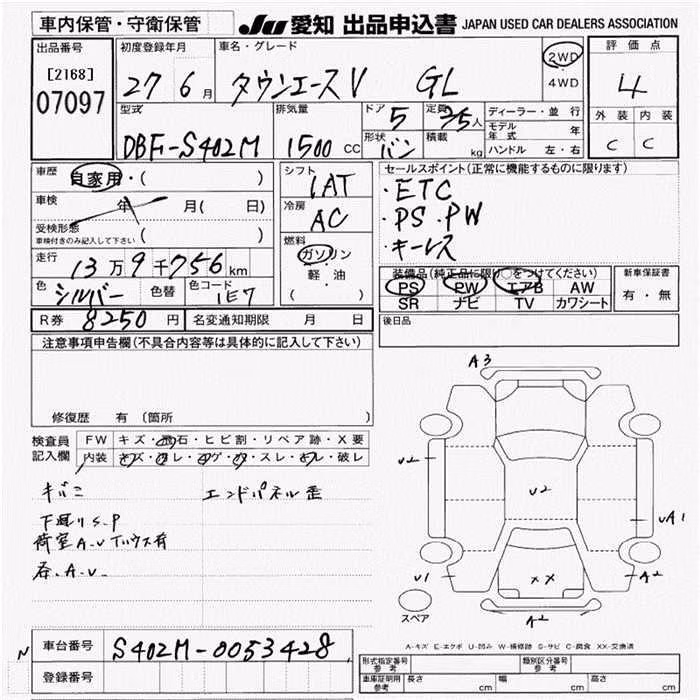 車内保管・守衛保管
JU 愛知 出品申込書 JAPAN USED CAR DEALERS ASSOCIATION
出品番号
[2168]
07097
初度登録年月
27 6月
車名・グレード
タウンエースV GL
2WD
・
4WD
評価点
4
外装 内装
C C
型式
DBF-S402M
排気量
1500 CC
ドア
5
定員
2/5人
形状
バン
積載
kg
ディーラー・並行
モデル年式 年
ハンドル 左・右
車歴 自家用・( )
車検 年 月( 日)
受検形態
車検付きのみ記入して下さい ( )
走行 13万9千756km
色 シルバー 色替 色コード 1E7
シフト
IAT
冷房
AC
燃料
ガソリン
・
軽・油
( )
セールスポイント(正常に機能するものに限ります)
・ETC
・PS・PW
・キーレス
装備品(純正品に限り○をつけてください)
PS PW エアB AW
SR ナビ TV カワシート
新車保証書
有・無
R券 8250円 名変通知期限 月 日
後日品
注意事項申告欄(不具合内容等は具体的に記入して下さい)
修復歴 有 〔箇所 〕
検査員
記入欄
FW キズ・飛石・ヒビ割・リペア跡・X要
内装 キズ・ヨゴレ・コゲ・穴・スレ・ハレ・破レ
キバミ エンドパネル歪
下廻りS.P
荷室A.UTハウス有
各.A.U
A3
U2
U2
UA1
U1
XX
A2
A2
スペア
A-キズ E-エクボ U-凹み W-補修跡 S-サビ C-腐食 XX-交換済
N
車台番号 S402M-0053428
登録番号
形式指定番号
参考
類別区分番号
参考
車庫証明用
参考
長さ cm 幅 cm 高さ cm